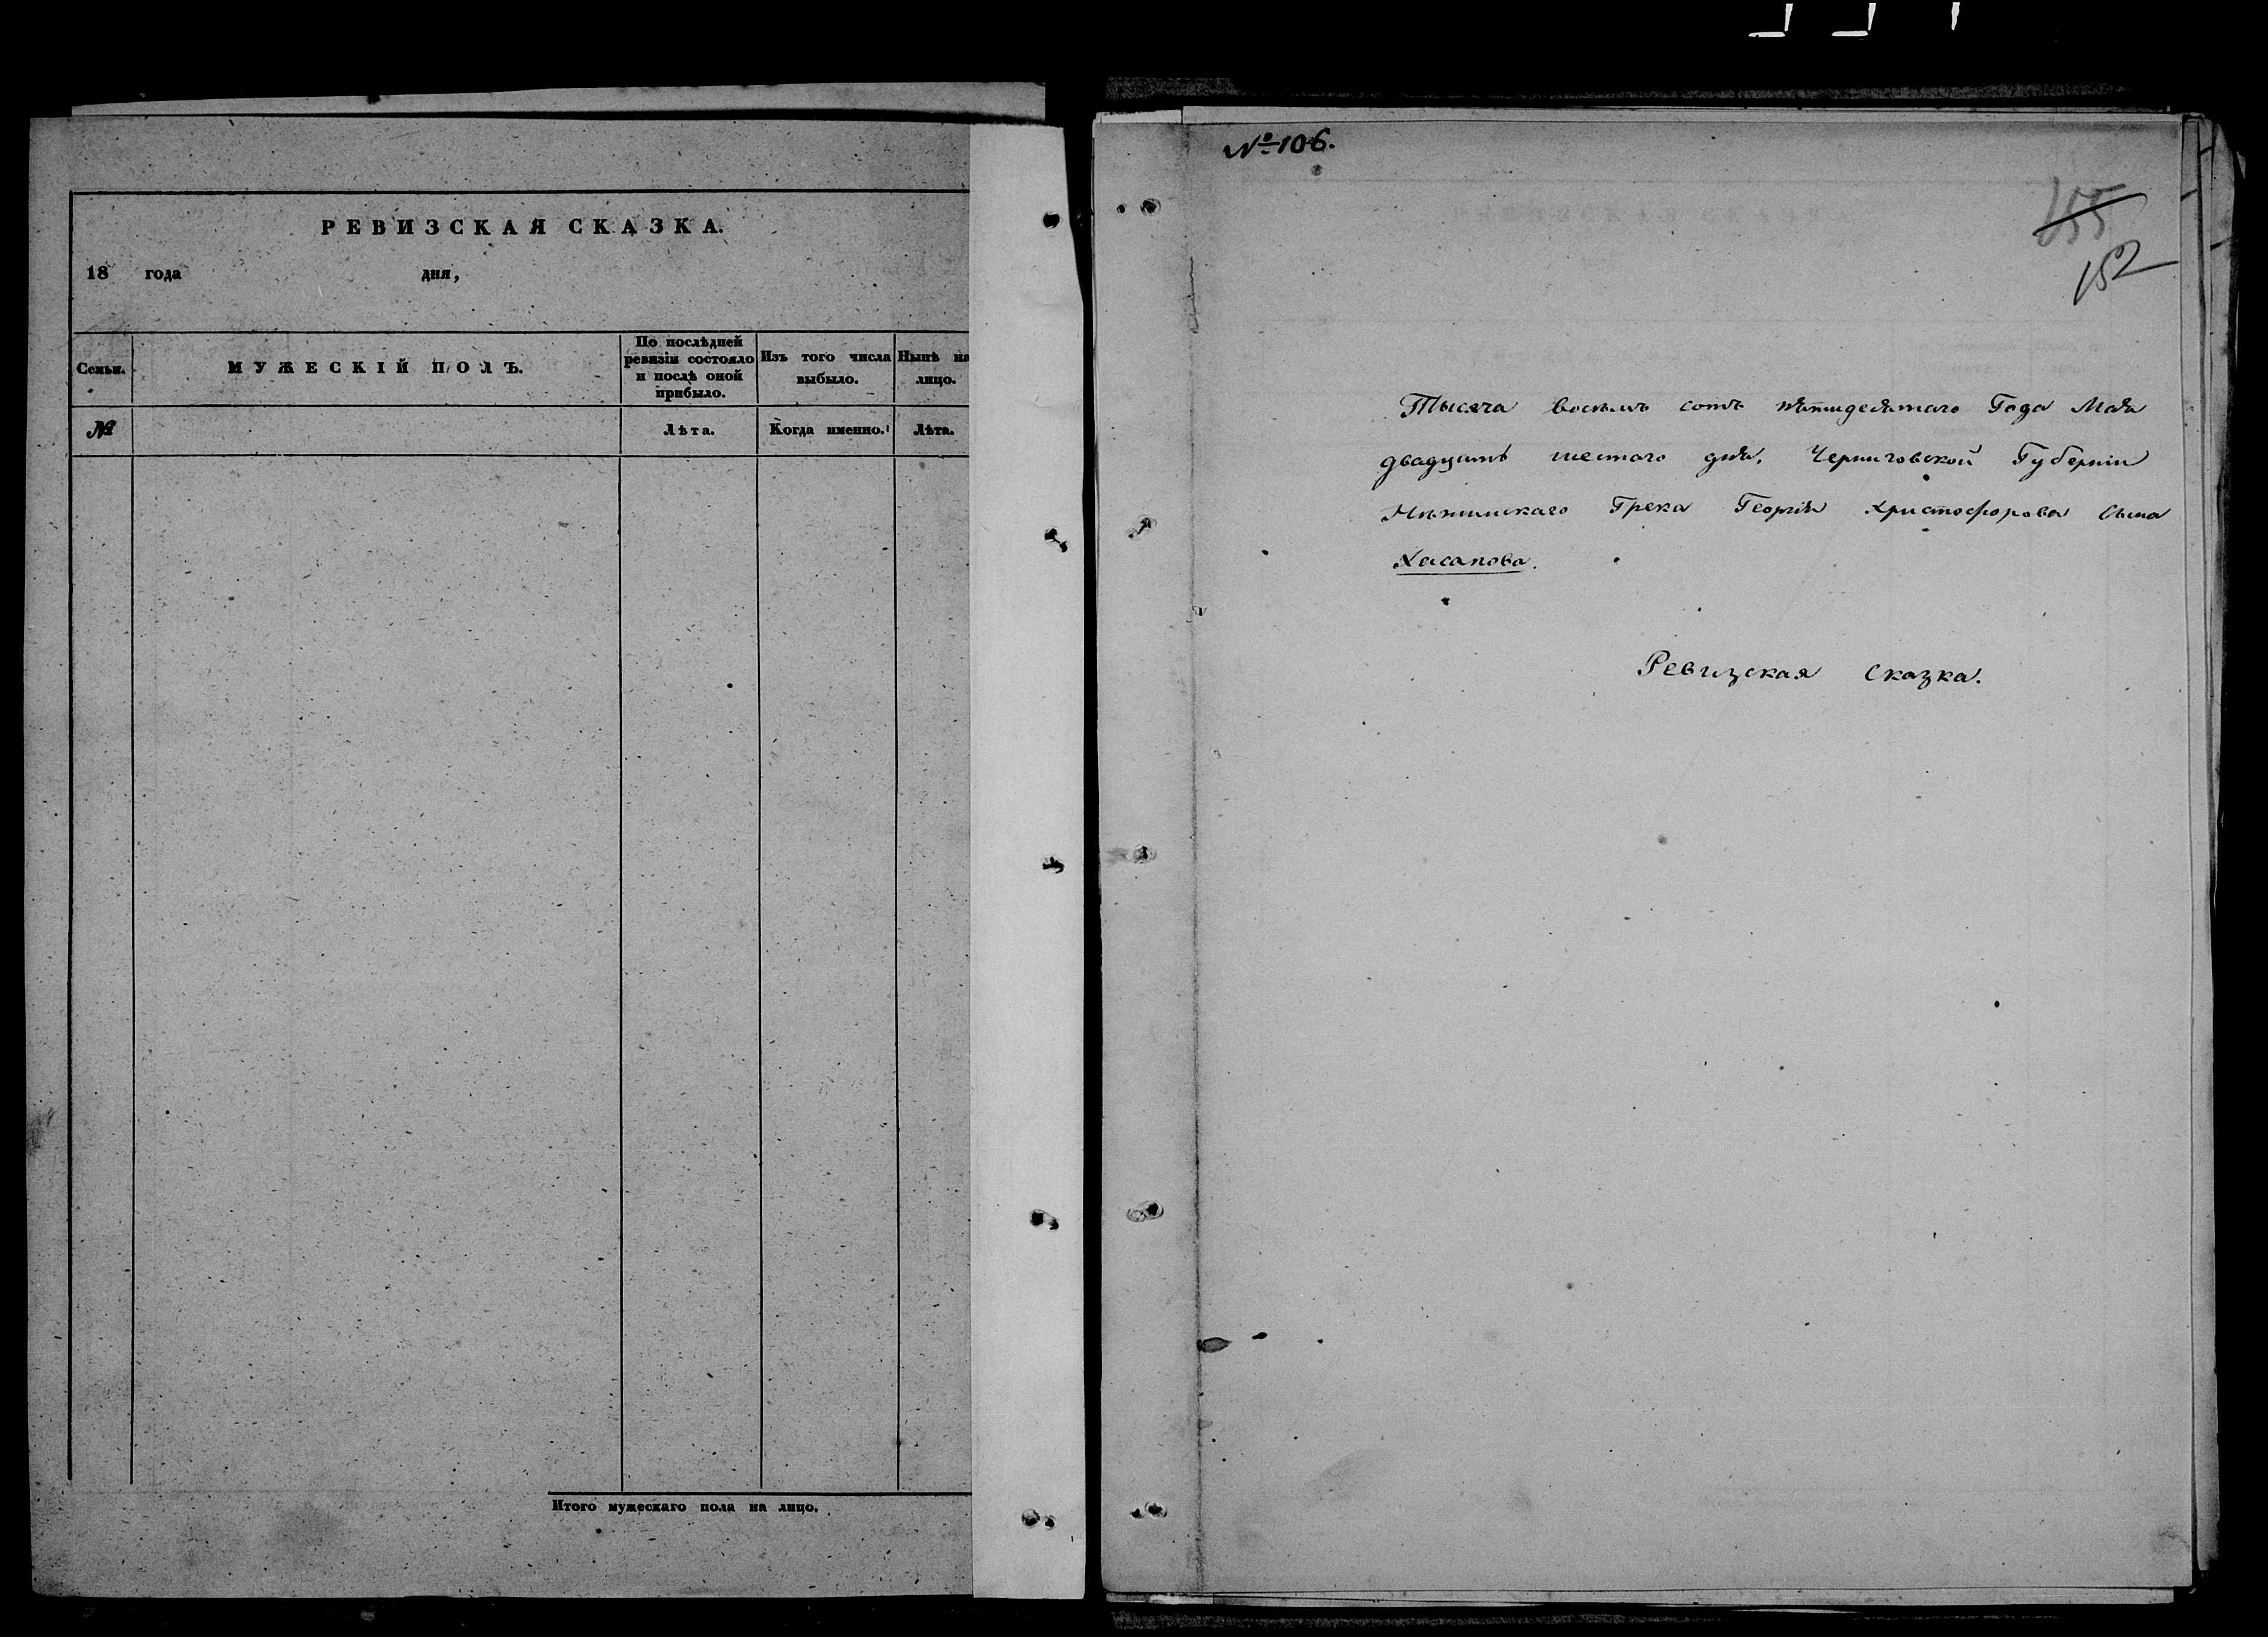 РЕВИЗСКАЯ СКАЗКА.
18 года дня,
Семьи.
МУЖЕСКІЙ ПОЛЪ.
По послѣдней ревизіи состояло и послѣ оной прибыло.
Изъ того числа выбыло.
Нынѣ на лицо.
№
Лѣта.
Когда именно.
Лѣта.
Итого мужескаго пола на лицо.
№ 106.
155
152
Тысяча восемь сотъ пятидесятаго Года Мая
двадцать шестаго дня. Черниговской Губерніи
Нѣжинскаго Грека Георгія Христофорова Сына
Хасапова.
Ревизская Сказка.